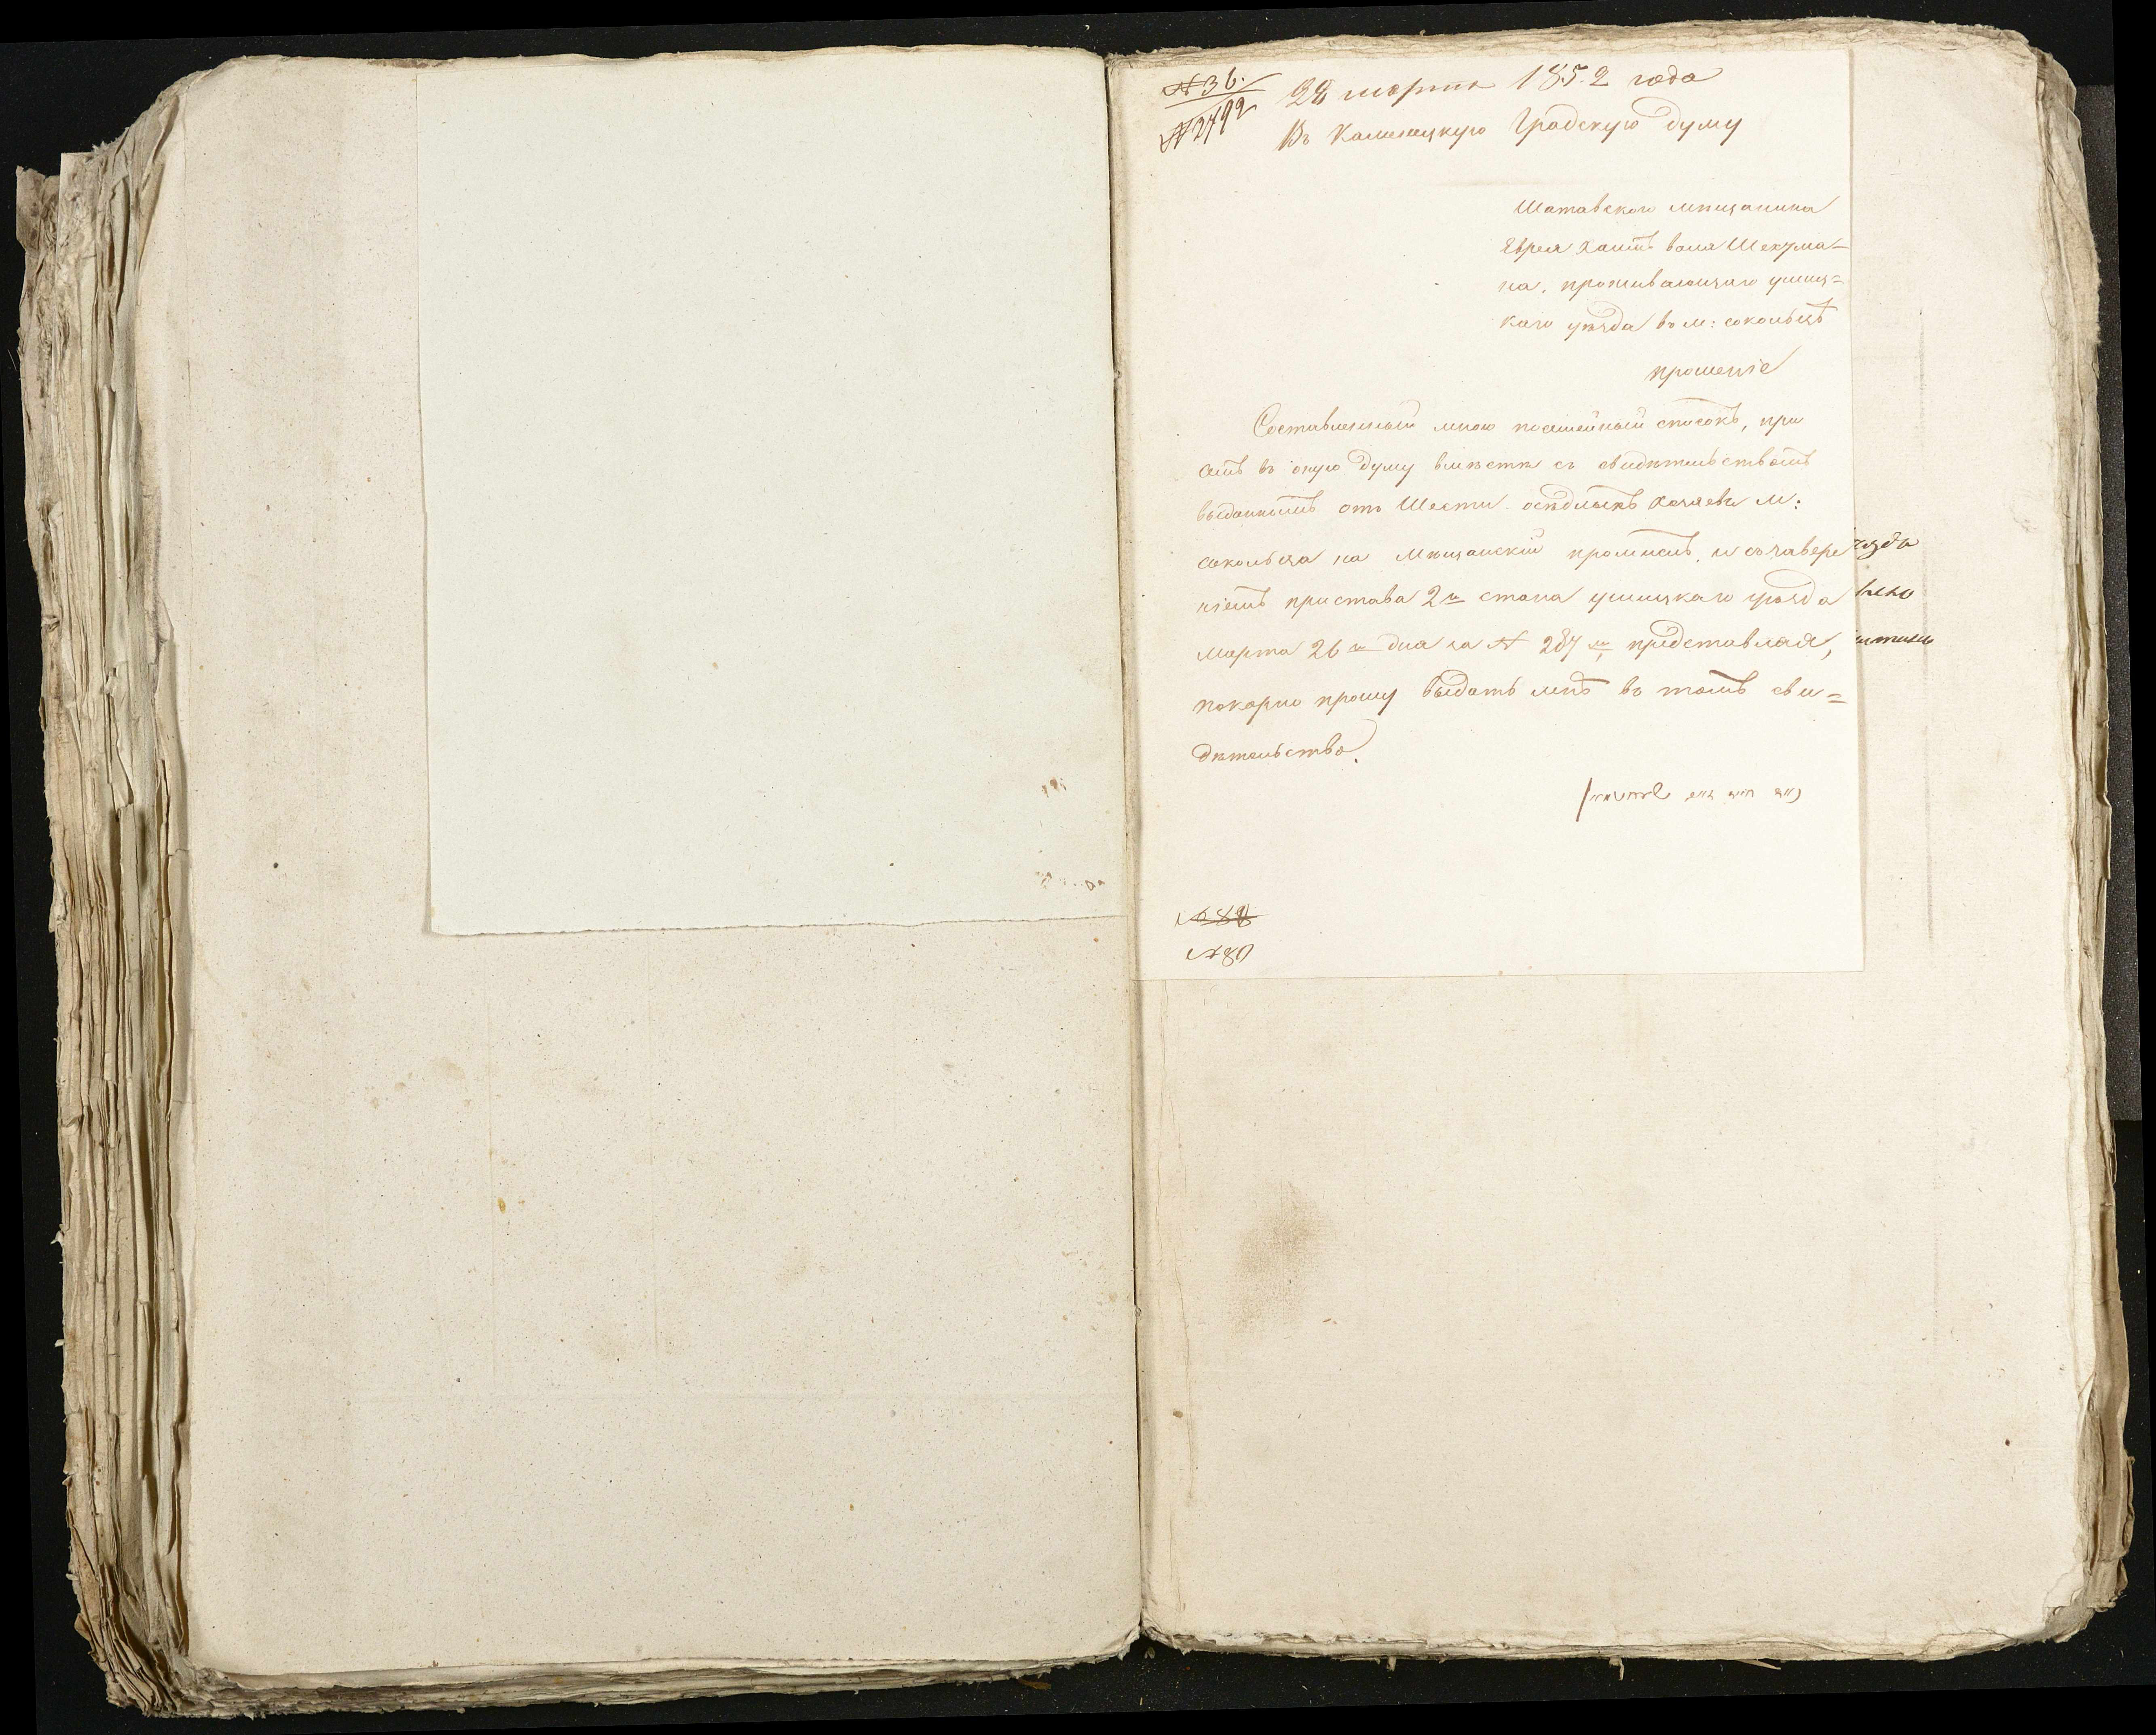 № 36.
№ 2492
28 марта 1852 года
Въ Каменецкую Градскую Думу
Шатавского мещанина
Еврея вола Шехтма-
на, проживающаго ушиц=
каго уезда въ м: сокольцѣ
прошеніе
Составленный мною посемейный списокъ, при
семъ въ оную Думу вместе съ свидетельствомъ
выданнымъ отъ Шести оседлыхъ хозяевъ м:
сокольца на Мещанскій промыслъ, и съ завере
ніемъ пристава 2го стана ушицкаго уезда
марта 26го дня за № 287м, представляя,
покорно прошу выдать мнѣ въ томъ сви=
детельство.
№ 80